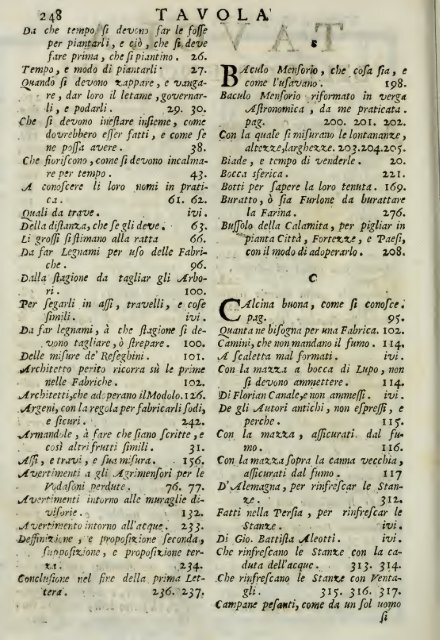 248 TAVOLA
Da che tempo si devono far le fosse
per piantarli, e ciò, che si deve
fare prima, che si piantino. 26.
Tempo, e modo di piantarli 27.
Quando si devono zappare, e vanga-
re, dar loro il letame, governar-
li, e podarli. 29. 30.
Che si devono inestare insieme, come
dovrebbero esser fatti, e come se
ne possa avere. 38.
Che fioriscono, come si devono incalma-
re per tempo. 43.
A conoscere li loro nomi in prati-
ca. 61. 62.
Quali da trave. ivi.
Della distanza, che se gli deve. 63.
Li grossi si stimano alla ratta 66.
Da far Legnami per uso delle Fabri-
che. 96.
Dalla stagione da tagliar gli Arbo-
ri. 100.
Per segarli in assi, travelli, e cose
simili. ivi.
Da far legnami, à che stagione si de-
vono tagliare, ò strepare. 100.
Delle misure de' Reseghini. 101.
Architetto perito ricorra sù le prime
nelle Fabriche. 102.
Architetti, che adoperano il Modolo. 126.
Argeni, con la regola per fabricarli sodi,
e sicuri. 242.
Armandole, à fare che siano scritte, e
così altri frutti simili. 31.
Assi, e travi, e sua misura. 156.
Avertimenti a gli Agrimensori per le
Possessioni perdute. 76. 77.
Avertimenti intorno alle muraglie di-
visorie. 132.
Avertimento intorno all'acque. 233.
Definizione, e proposizione seconda,
supposizione, e proposizione ter-
za. 234.
Conclusione nel fine della prima Let-
tera. 236. 237.
B
BAculo Mensorio, che cosa sia, e
come l'usavano. 198.
Baculo Mensorio riformato in verga
Astronomica, da me praticata.
pag. 200. 201. 202.
Con la quale si misurano le lontananze,
altezze, larghezze. 203. 204. 205.
Biade, e tempo di venderle. 20.
Bocca sferica. 221.
Botti per sapere la loro tenuta. 169.
Buratto, ò sia Furlone da burattare
la Farina. 276.
Bussolo della Calamita, per pigliar in
pianta Città, Fortezze, e Paesi,
con il modo di adoperarlo. 208.
C
CAlcina buona, come si conosce.
pag. 95.
Quanta ne bisogna per una Fabrica. 102.
Camini, che non mandano il fumo. 114.
A scaletta mal formati. ivi.
Con la mazza a bocca di Lupo, non
si devono ammettere. 114.
Di Florian Canale, e non ammessi. ivi.
De gli Autori antichi, non espressi, e
perche. 115.
Con la mazza, assicurati dal fu-
mo. 116.
Con la mazza sopra la canna vecchia,
assicurati dal fumo. 117
D'Alemagna, per rinfrescar le Stan-
ze. 312.
Fatti nella Persia, per rinfrescar le
Stanze. ivi.
Di Gio. Battista Aleotti. ivi.
Che rinfrescano le Stanze con la ca-
duta dell'acque. 313. 314.
Che rinfrescano le Stanze con Venta-
gli. 315. 316. 317.
Campane pesanti, come da un sol uomo
si